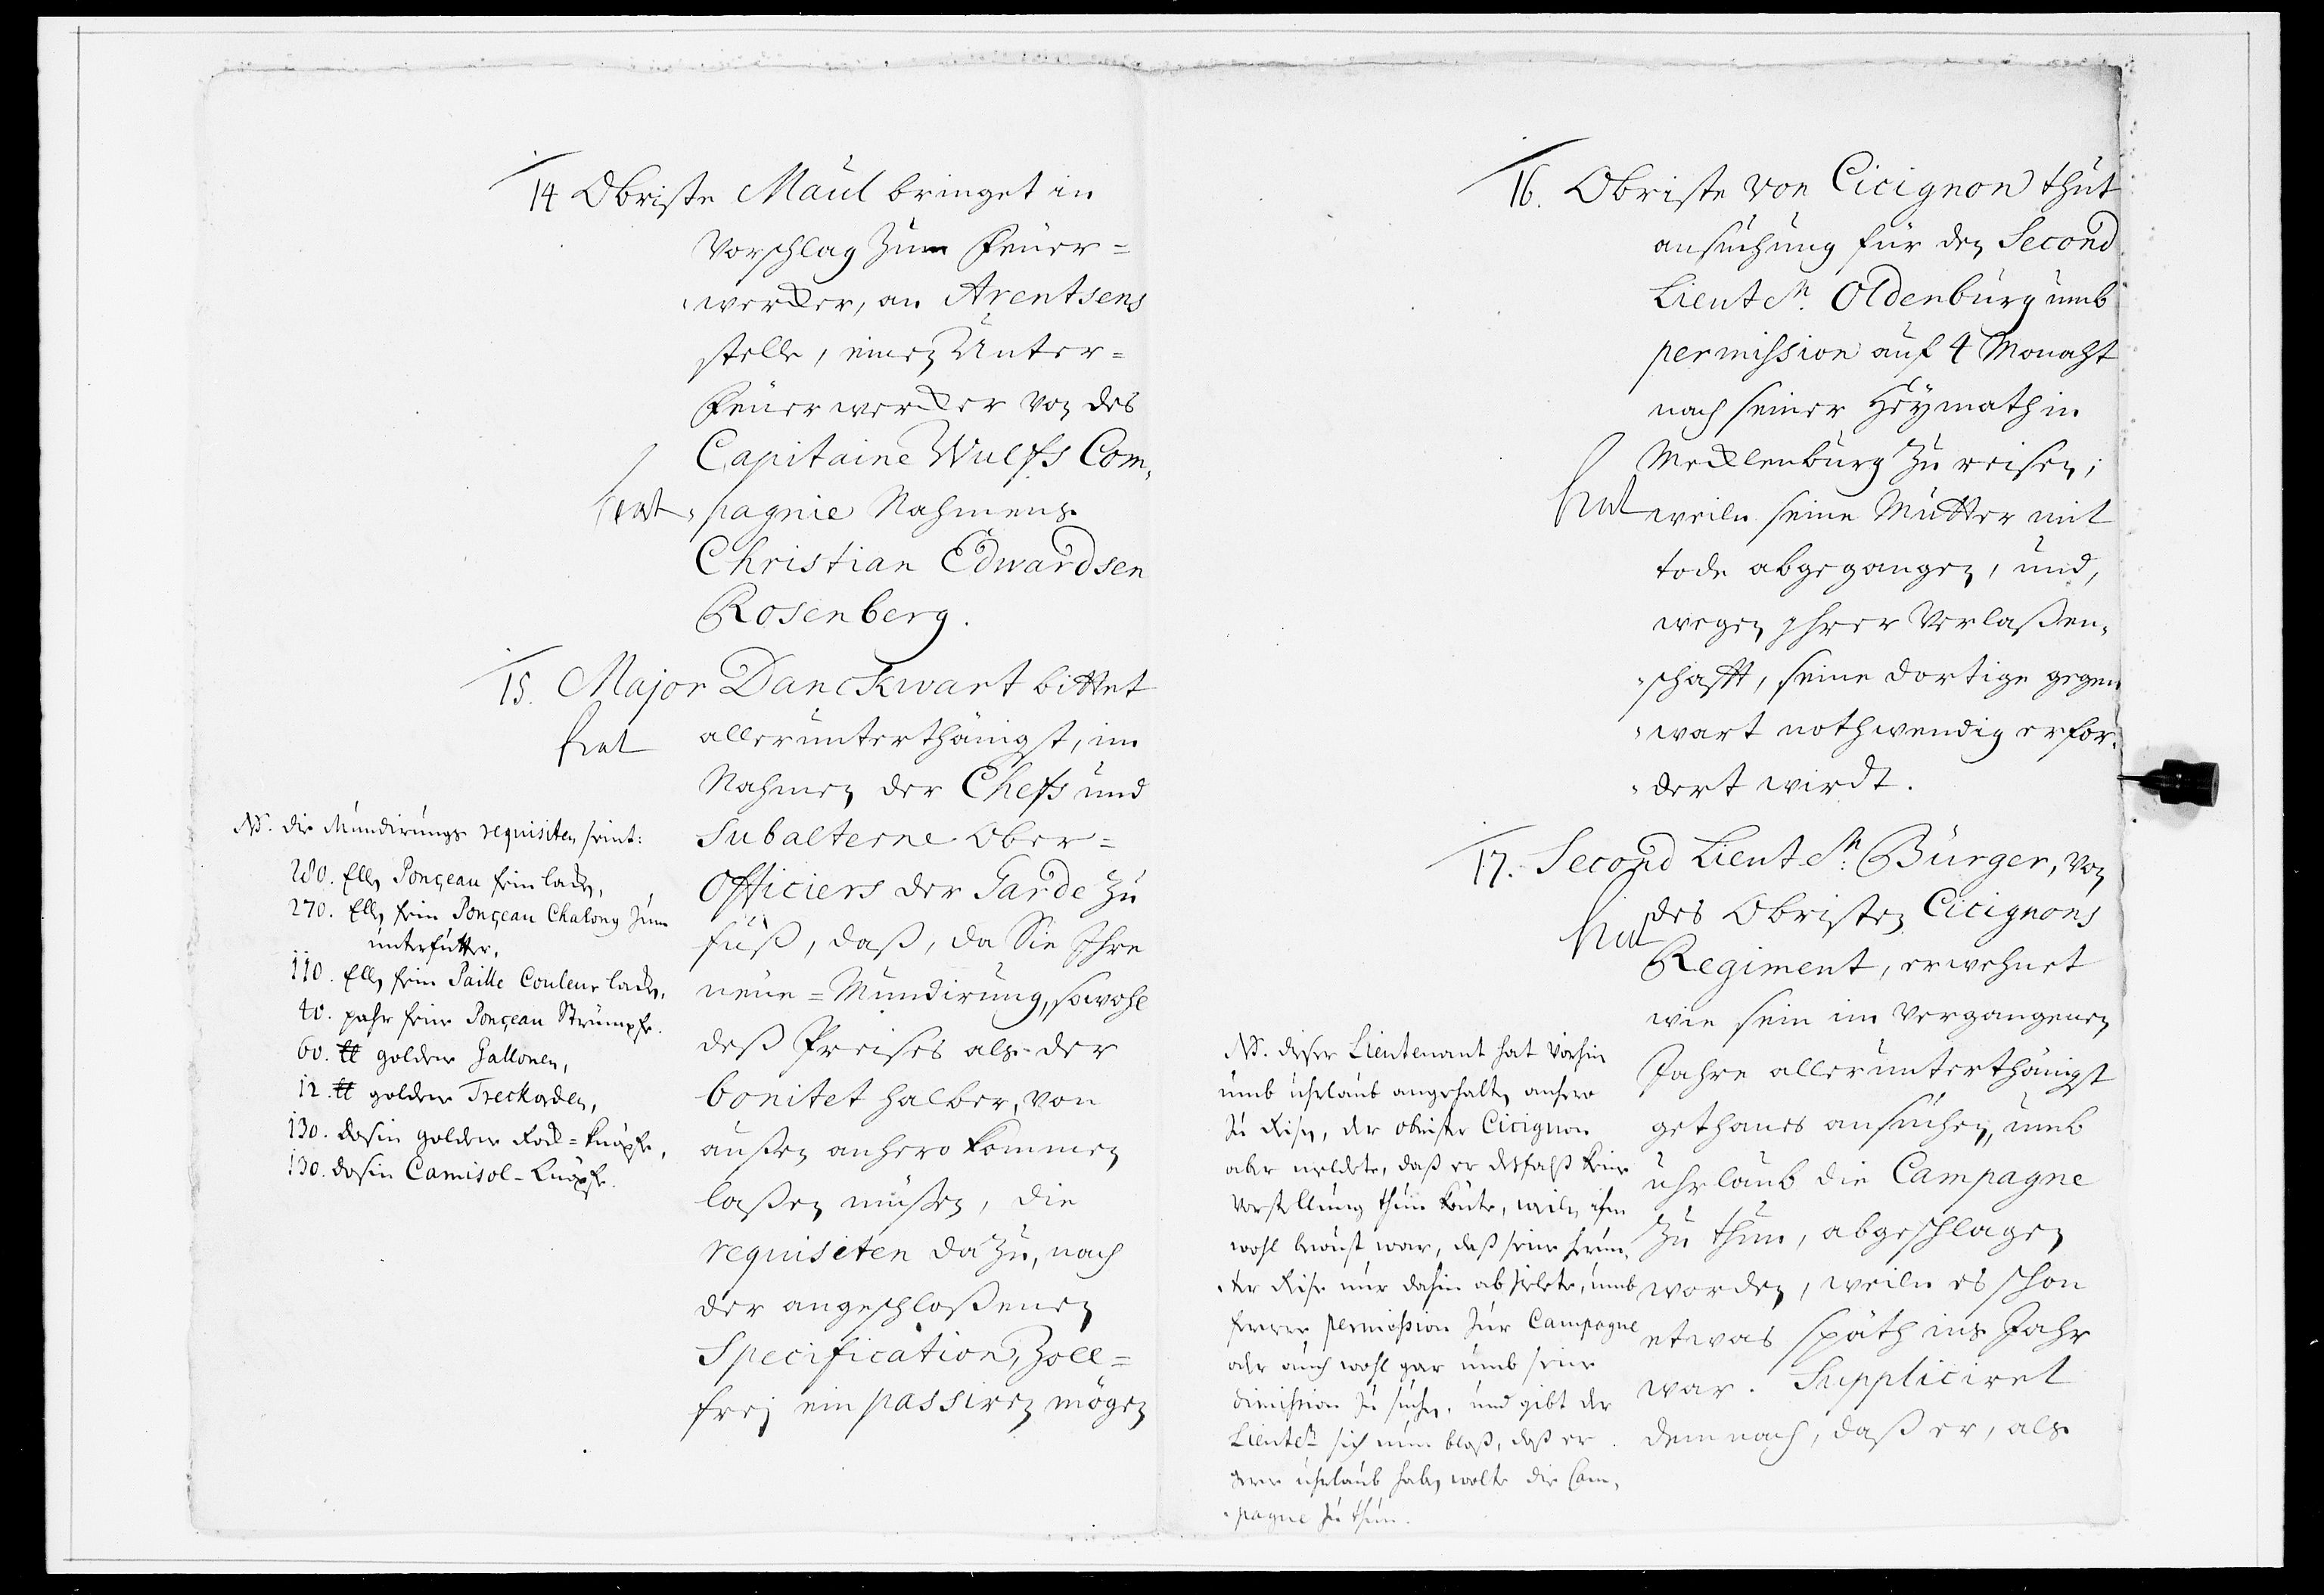 14 Obriste Maul bringet in
Vorschlag zum Feuer=
wercker, an Arentsens
stelle, einen Unter=
Feuerwercker von des
Capitaine Wulffs Com¬
pagnie Nahmens
Christian Edwardsen
Rosenberg.
15. Major Danckwart bittet
allerunterthänigst, im
Nahmen der Cheffs und
Subalterne Ober=
Officiers der Garde zu
fuß, daß, da Sie Ihre
neue=Mundirung, sowohl
deß Preises als der
bonitet halber, von
außen anhero kommen
laßen müßen, die
requisiten dazu, nach
der angeschloßenen
Specification, Zoll=
frej ein passiren mögen
NB. die Mundirungs requisiten seint:
280. Ell, Ponçeau fein laken,
270. Ell, fein Ponçeau Chalong zum
unterfutter.
110. Ell, fein Paille Couleur laken,
40. pahr feine Ponçeau Strümpfe.
60. ℔ goldene Gallonen,
12. ℔ goldene Treckorden,
130. dosin goldene Rock=knöpfe,
130. dosin Camisol-knöpfe.
16. Obriste von Cicignon thut
ansuchung für den Second
Lieutn. Oldenburg umb
permission auf 4 Monaht
nach seiner Heÿmath in
Mecklenburg zu reisen;
weiln seine Mutter mit
tode abgegangen, und,
wegen Ihrer Verlaßen¬
schafft, seine dortige gegen
wart nothwendig erfor¬
dert wirdt.
17. Second Lieutn. Bürger, von
des Obristen Cicignons
Regiment, erwehnet
wie sein im vergangenen
Jahre allerunterthänigst
gethanes ansuchen, umb
uhrlaub die Campagne
zu thun, abgeschlagen
worden, weiln es schon
etwas späth ins Jahr
war. Suppliciret
demnach, daß er, als
NB. dieser Lieutenant hat vorhin
umb uhrlaub angehalten, anhero
zu reisen, der obrister Cicignon
aber meldete, daß er desfalß keine
Vorstellung thun könte, weiln ihm
wohl bewust war, daß seine
Reise nur dahin abzielete, umb
permission zur Campagne
oder auch wohl gar umb seine
dimission zu suchen, und gibt der
Lieutn. sich nun bloß, daß er
gern uhrlaub haben wolte die Cam¬
pagne zu thun.